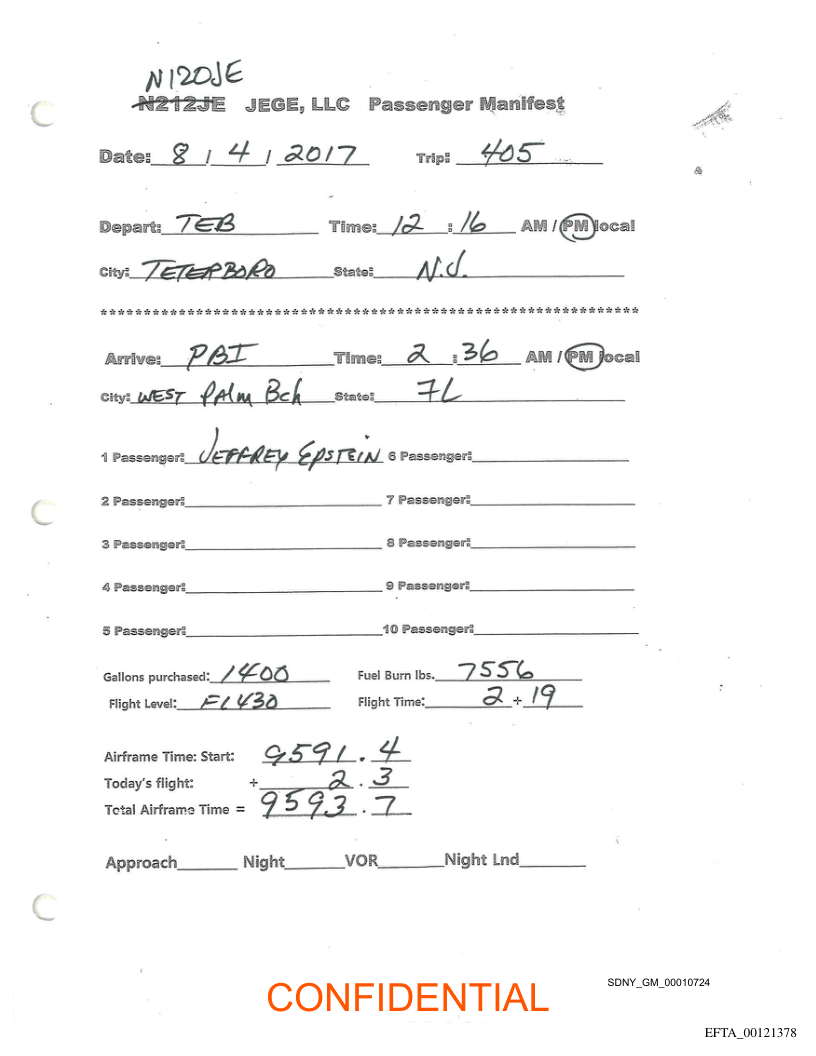 N120JE
N212JE JEGE, LLC Passenger Manifest
Date: 8 / 4 / 2017 Trip: 405
Depart: TEB Time: 12 : 16 AM / PM local
City: TETERBORO State: N.J.
****************************************************************
Arrive: PBI Time: 2 : 36 AM / PM local
City: WEST PAlm Bch State: FL
1 Passenger: JEFFREY EPSTEIN 6 Passenger:
2 Passenger: 7 Passenger:
3 Passenger: 8 Passenger:
4 Passenger: 9 Passenger:
5 Passenger: 10 Passenger:
Gallons purchased: 1400 Fuel Burn lbs. 7556
Flight Level: FL430 Flight Time: 2 + 19
Airframe Time: Start: 9591.4
Today's flight: + 2.3
Total Airframe Time = 9593.7
Approach Night VOR Night Lnd
SDNY_GM_00010724
CONFIDENTIAL
EFTA_00121378